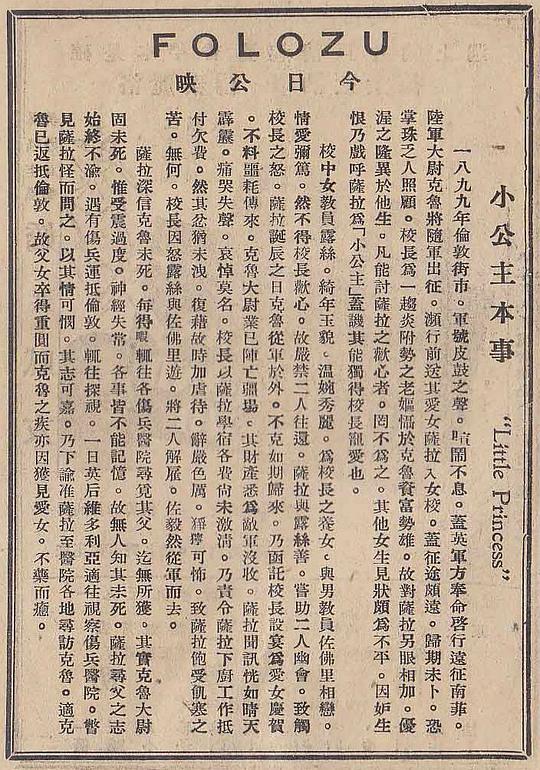 FOLOZU
今日公映
小公主本事 "Little Princess"
一八九九年倫敦街市。軍號皮鼓之聲。喧鬧不息。蓋英軍方奉命啓行遠征南菲。
陸軍大尉克魯將隨軍出征。瀕行前送其愛女薩拉入女校。蓋征途頗遠。歸期未卜。恐
掌珠乏人照顧。校長爲一趨炎附勢之老嫗懾於克魯資富勢雄。故對薩拉另眼相加。優
渥之隆異於他生。凡能討薩拉之歡心者。罔不爲之。其他女生見狀頗爲不平。因妒生
恨乃戲呼薩拉爲「小公主」蓋譏其能獨得校長寵愛也。
校中女敎員露絲。綺年玉貌。溫婉秀麗。爲校長之養女。與男敎員佐佛里相戀。
情愛彌篤。然不得校長歡心。故嚴禁二人往還。薩拉與露絲善。嘗助二人幽會。致觸
校長之怒。薩拉誕辰之日克魯從軍於外。不克如期歸來。乃函託校長設宴爲愛女慶賀
。不料噩耗傳來。克魯大尉業已陣亡疆場。其財產悉爲敵軍沒收。薩拉聞訊恍如晴天
霹靂。痛哭失聲。哀悼莫名。校長以薩拉學宿各費尙未激清。乃責令薩拉下廚工作抵
付欠費。然其忿猶未洩。復藉故時加虐待。辭嚴色厲。猙獰可怖。致薩拉飽受飢寒之
苦。無何。校長因怒露絲與佐佛里遊。將二人解雇。佐毅然從軍而去。
薩拉深信克魯未死。每得暇輒往各傷兵醫院尋覓其父。迄無所獲。其實克魯大尉
固未死。惟受震過度。神經失常。各事皆不能記憶。故無人知其未死。薩拉尋父之志
始終不渝。遇有傷兵運抵倫敦。輒往探視。一日英后維多利亞適往視察傷兵醫院。瞥
見薩拉怪而問之。以其情可憫。其志可嘉。乃下諭准薩拉至醫院各地尋訪克魯。適克
魯已返抵倫敦。故父女卒得重圓而克魯之疾亦因獲見愛女。不藥而癒。